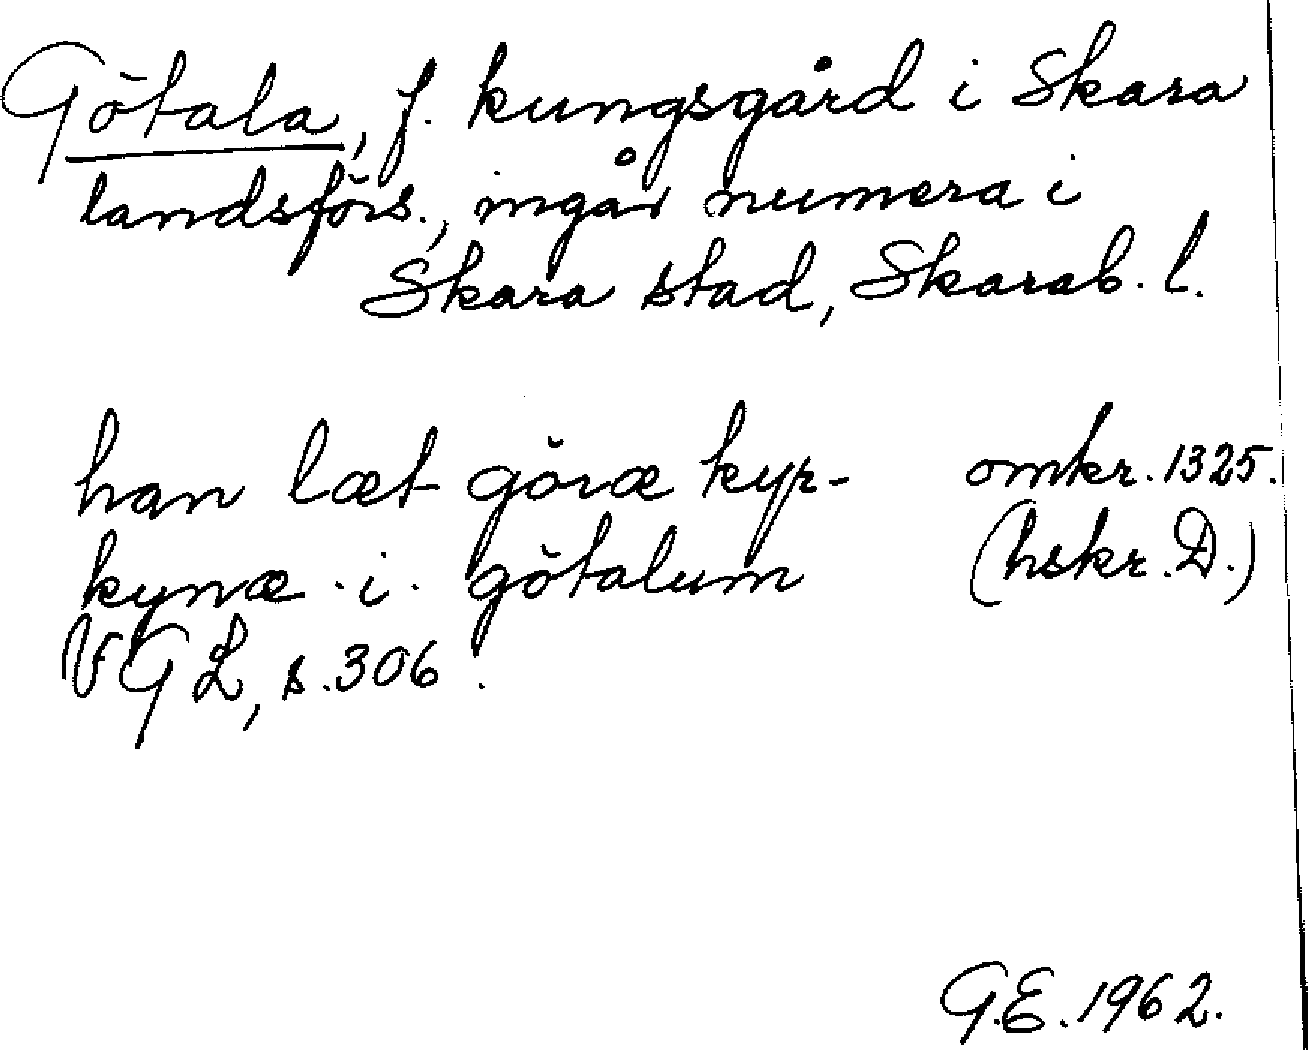 Götala, f. kungsgård i Skara
landsförs., ingår numera i
Skara stad, Skarab. l.
han læt göræ kyr- omkr. 1325.
kynæ . i . götalum (hskr. D.)
VGL, s. 306.
G.E. 1962.